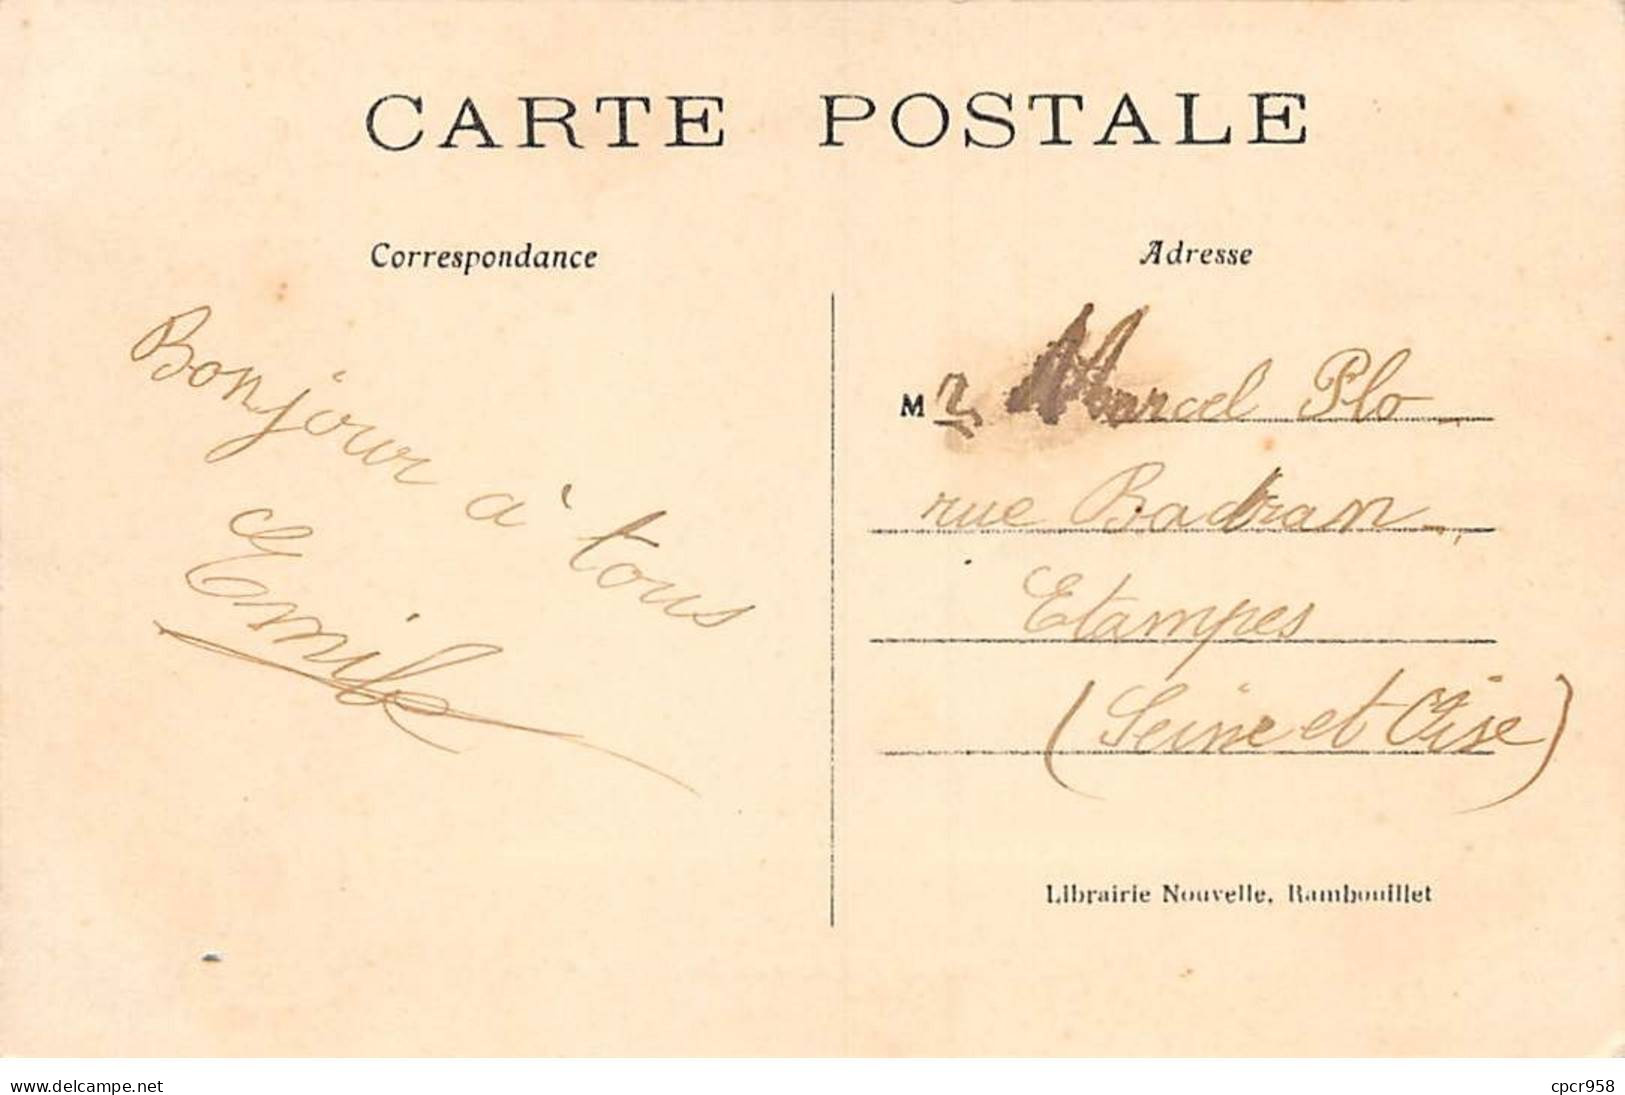 CARTE POSTALE
Correspondance
Bonjour à tous
Emile
Adresse
Mr Marcel Plo
rue Badran
Etampes
(Seine et Oise)
Librairie Nouvelle, Rambouillet
www.delcampe.net
cpcr958